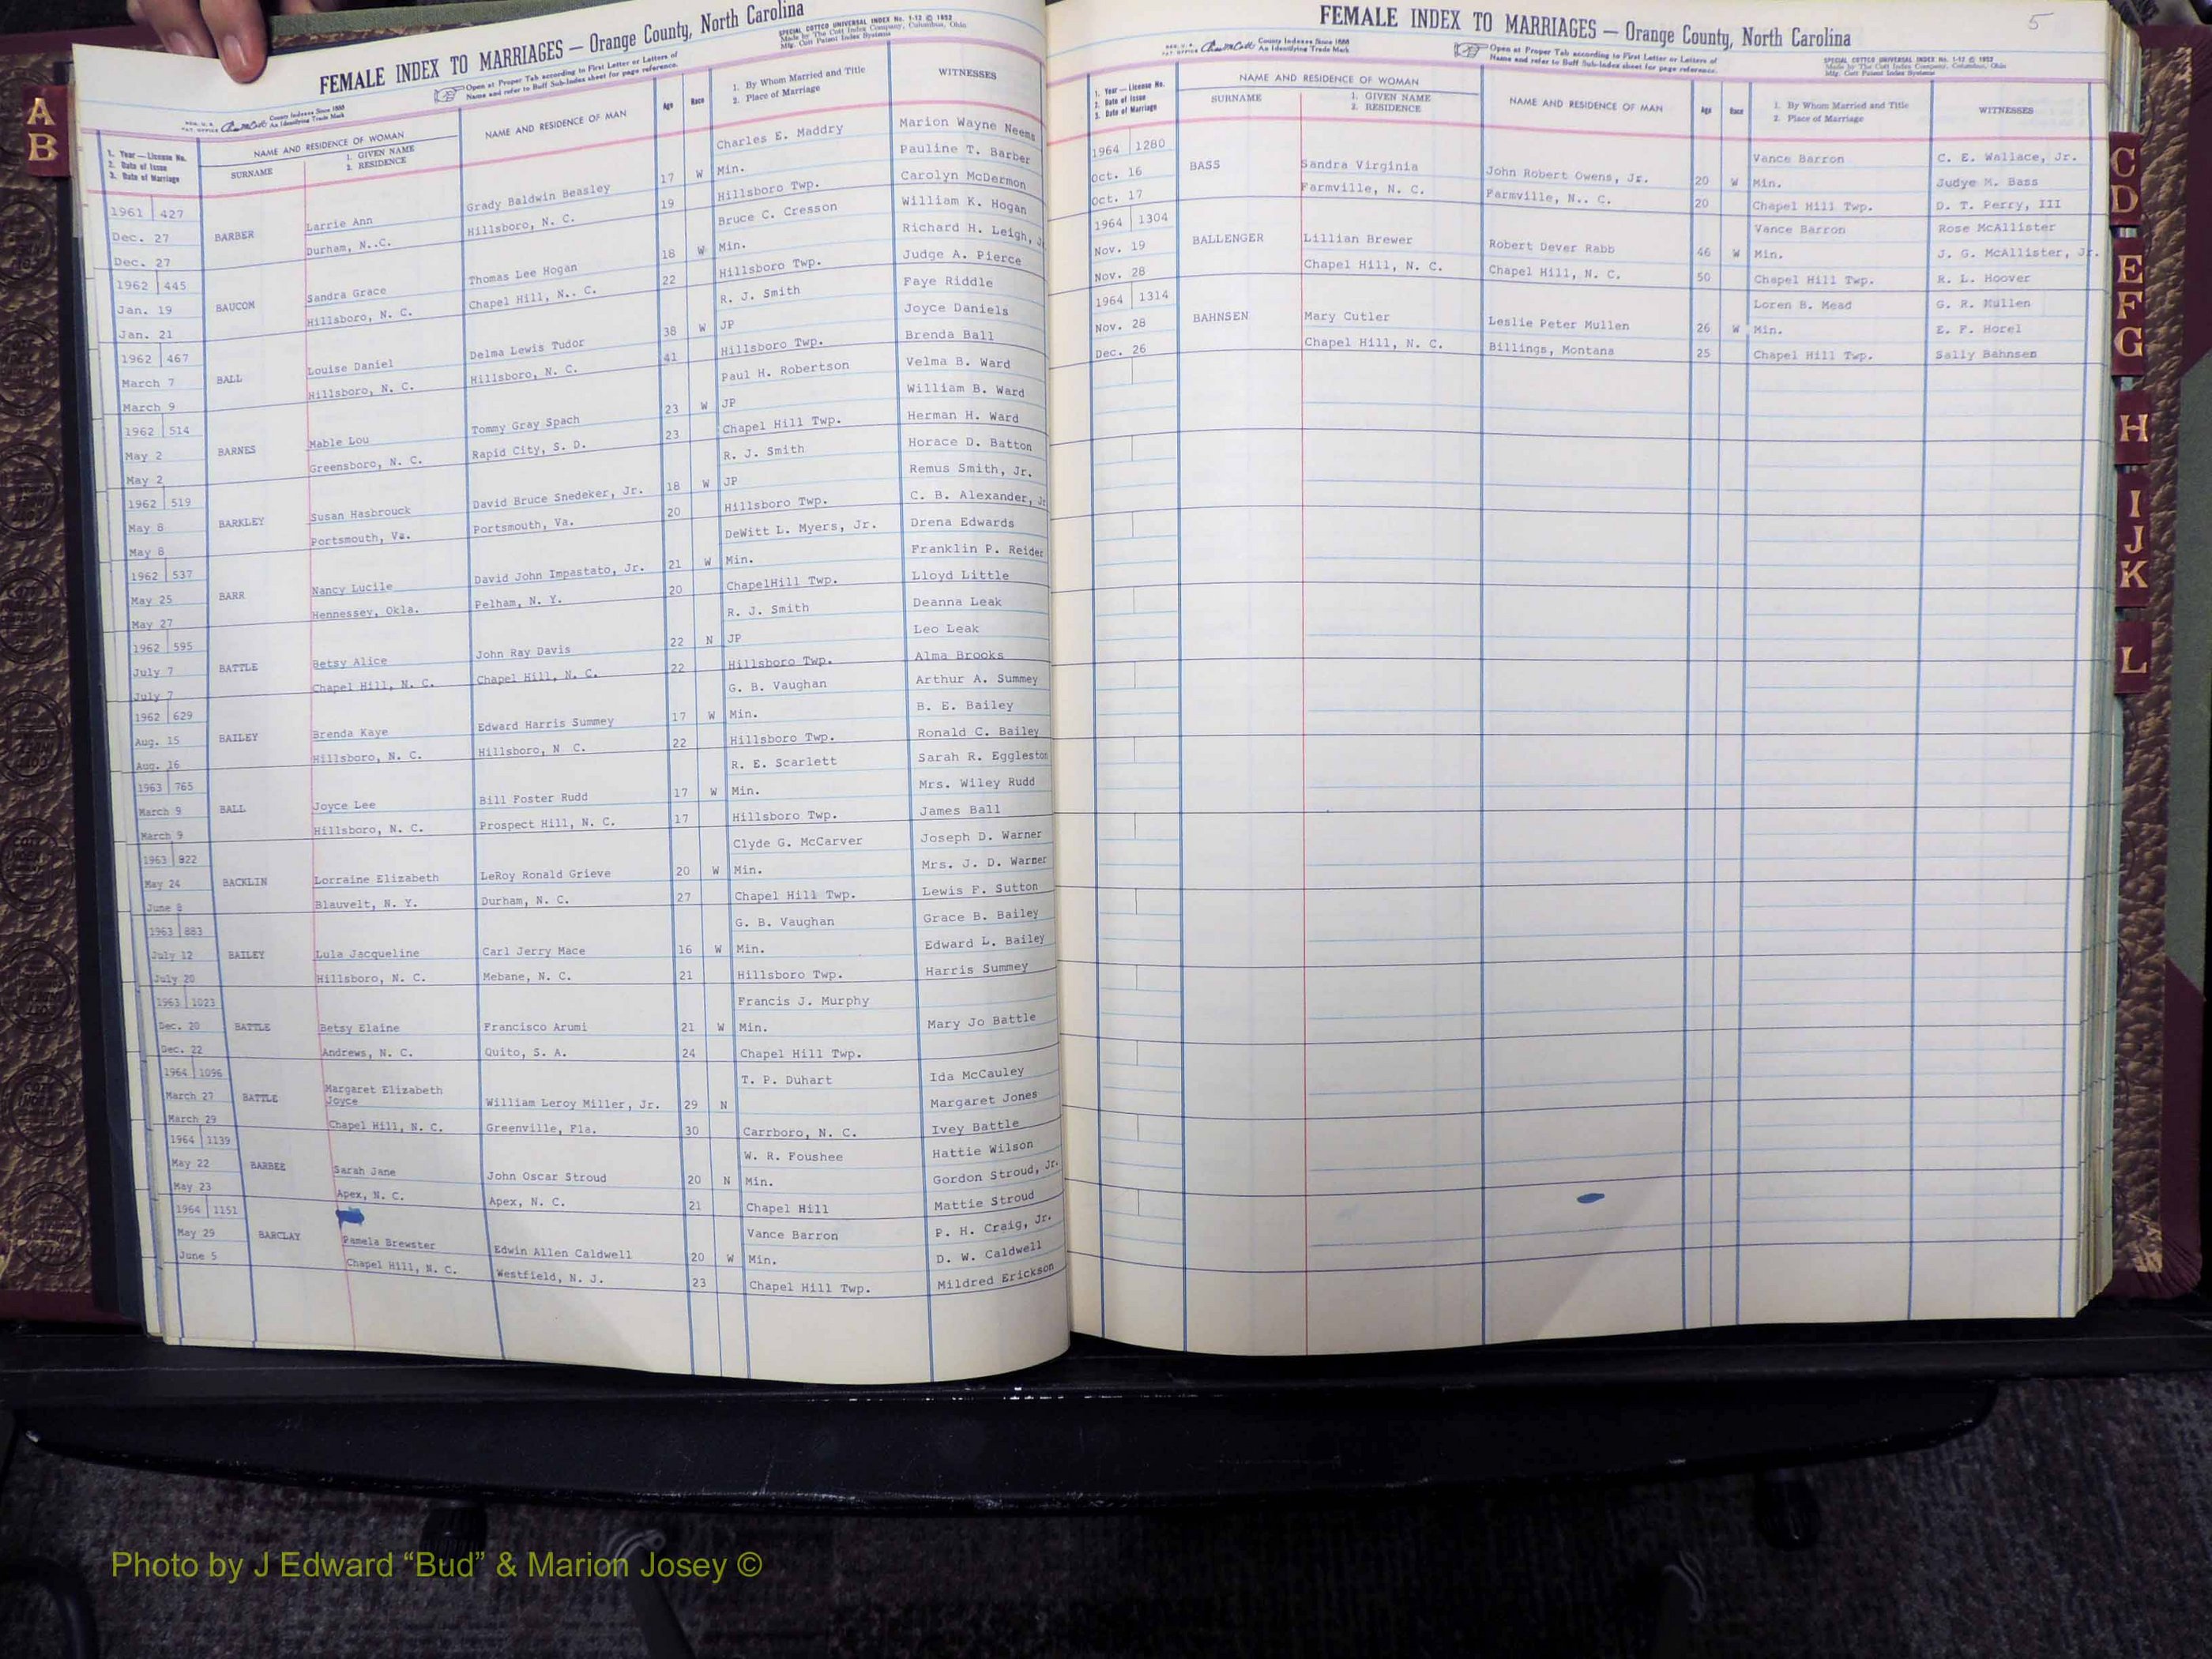 FEMALE INDEX TO MARRIAGES — Orange County, North Carolina
SPECIAL COTTCO UNIVERSAL INDEX No. 1-12 © 1952
Made by The Cott Index Company, Columbus, Ohio
Mfg. Cott Patent Index Systems
Open at Proper Tab according to First Letter or Letters of
Name and refer to Buff Sub-Index sheet for page reference.
County Indexes Since 1888
An Identifying Trade Mark
1. Year — License No.
2. Date of Issue
3. Date of Marriage
NAME AND RESIDENCE OF WOMAN
SURNAME
1. GIVEN NAME
2. RESIDENCE
NAME AND RESIDENCE OF MAN
Age
Race
1. By Whom Married and Title
2. Place of Marriage
WITNESSES
1961 427 Charles E. Maddry Marion Wayne Neems
Dec. 27 BARBER Larrie Ann Grady Baldwin Beasley 17 W Min. Pauline T. Barber
Dec. 27 Durham, N..C. Hillsboro, N. C. 19 Hillsboro Twp. Carolyn McDermon
1962 445 Bruce C. Cresson William K. Hogan
Jan. 19 BAUCOM Sandra Grace Thomas Lee Hogan 18 W Min. Richard H. Leigh, J
Jan. 21 Hillsboro, N. C. Chapel Hill, N.. C. 22 Hillsboro Twp. Judge A. Pierce
1962 467 R. J. Smith Faye Riddle
March 7 BALL Louise Daniel Delma Lewis Tudor 38 W JP Joyce Daniels
March 9 Hillsboro, N. C. Hillsboro, N. C. 41 Hillsboro Twp. Brenda Ball
1962 514 Paul H. Robertson Velma B. Ward
May 2 BARNES Mable Lou Tommy Gray Spach 23 W JP William B. Ward
May 2 Greensboro, N. C. Rapid City, S. D. 23 Chapel Hill Twp. Herman H. Ward
1962 519 R. J. Smith Horace D. Batton
May 8 BARKLEY Susan Hasbrouck David Bruce Snedeker, Jr. 18 W JP Remus Smith, Jr.
May 8 Portsmouth, Va. Portsmouth, Va. 20 Hillsboro Twp. C. B. Alexander, J
1962 537 DeWitt L. Myers, Jr. Drena Edwards
May 25 BARR Nancy Lucile David John Impastato, Jr. 21 W Min. Franklin P. Reider
May 27 Hennessey, Okla. Pelham, N. Y. 20 ChapelHill Twp. Lloyd Little
1962 595 R. J. Smith Deanna Leak
July 7 BATTLE Betsy Alice John Ray Davis 22 N JP Leo Leak
July 7 Chapel Hill, N. C. Chapel Hill, N. C. 22 Hillsboro Twp. Alma Brooks
1962 629 G. B. Vaughan Arthur A. Summey
Aug. 15 BAILEY Brenda Kaye Edward Harris Summey 17 W Min. B. E. Bailey
Aug. 16 Hillsboro, N. C. Hillsboro, N C. 22 Hillsboro Twp. Ronald C. Bailey
1963 765 R. E. Scarlett Sarah R. Eggleston
March 9 BALL Joyce Lee Bill Foster Rudd 17 W Min. Mrs. Wiley Rudd
March 9 Hillsboro, N. C. Prospect Hill, N. C. 17 Hillsboro Twp. James Ball
1963 822 Clyde G. McCarver Joseph D. Warner
May 24 BACKLIN Lorraine Elizabeth LeRoy Ronald Grieve 20 W Min. Mrs. J. D. Warner
June 8 Blauvelt, N. Y. Durham, N. C. 27 Chapel Hill Twp. Lewis F. Sutton
1963 883 G. B. Vaughan Grace B. Bailey
July 12 BAILEY Lula Jacqueline Carl Jerry Mace 16 W Min. Edward L. Bailey
July 20 Hillsboro, N. C. Mebane, N. C. 21 Hillsboro Twp. Harris Summey
1963 1023 Francis J. Murphy
Dec. 20 BATTLE Betsy Elaine Francisco Arumi 21 W Min. Mary Jo Battle
Dec. 22 Andrews, N. C. Quito, S. A. 24 Chapel Hill Twp.
1964 1096 T. P. Duhart Ida McCauley
March 27 BATTLE Margaret Elizabeth Joyce William Leroy Miller, Jr. 29 N Margaret Jones
March 29 Chapel Hill, N. C. Greenville, Fla. 30 Carrboro, N. C. Ivey Battle
1964 1139 W. R. Foushee Hattie Wilson
May 22 BARBEE Sarah Jane John Oscar Stroud 20 N Min. Gordon Stroud, Jr.
May 23 Apex, N. C. Apex, N. C. 21 Chapel Hill Mattie Stroud
1964 1151 Vance Barron P. H. Craig, Jr.
May 29 BARCLAY Pamela Brewster Edwin Allen Caldwell 20 W Min. D. W. Caldwell
June 5 Chapel Hill, N. C. Westfield, N. J. 23 Chapel Hill Twp. Mildred Erickson
FEMALE INDEX TO MARRIAGES — Orange County, North Carolina
5
County Indexes Since 1888
An Identifying Trade Mark
Open at Proper Tab according to First Letter or Letters of
Name and refer to Buff Sub-Index sheet for page reference.
SPECIAL COTTCO UNIVERSAL INDEX No. 1-12 © 1952
Made by The Cott Index Company, Columbus, Ohio
Mfg. Cott Patent Index Systems
1. Year — License No.
2. Date of Issue
3. Date of Marriage
NAME AND RESIDENCE OF WOMAN
SURNAME
1. GIVEN NAME
2. RESIDENCE
NAME AND RESIDENCE OF MAN
Age
Race
1. By Whom Married and Title
2. Place of Marriage
WITNESSES
1964 1280 Vance Barron C. E. Wallace, Jr.
Oct. 16 BASS Sandra Virginia John Robert Owens, Jr. 20 W Min. Judye M. Bass
Oct. 17 Farmville, N. C. Farmville, N.. C. 20 Chapel Hill Twp. D. T. Perry, III
1964 1304 Vance Barron Rose McAllister
Nov. 19 BALLENGER Lillian Brewer Robert Dever Rabb 46 W Min. J. G. McAllister, Jr.
Nov. 28 Chapel Hill, N. C. Chapel Hill, N. C. 50 Chapel Hill Twp. R. L. Hoover
1964 1314 Loren B. Mead G. R. Mullen
Nov. 28 BAHNSEN Mary Cutler Leslie Peter Mullen 26 W Min. E. F. Horel
Dec. 26 Chapel Hill, N. C. Billings, Montana 25 Chapel Hill Twp. Sally Bahnsen
A
B
C
D
E
F
G
H
I
J
K
L
Photo by J Edward “Bud” & Marion Josey ©